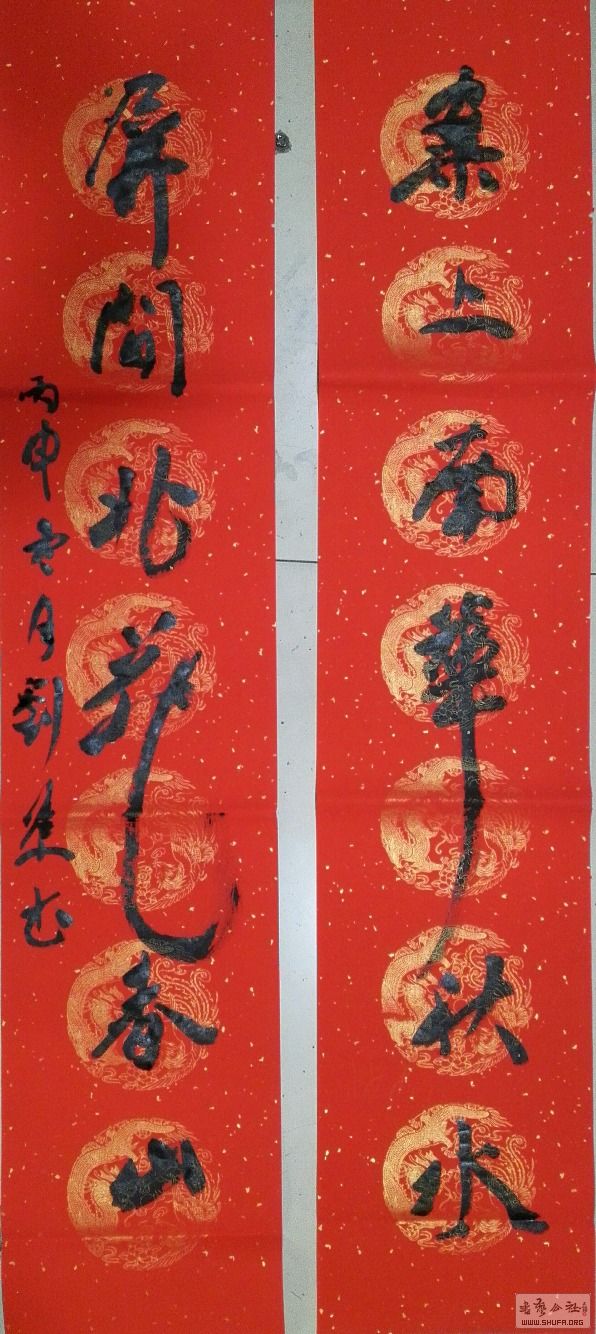 案上南華秋水
屏間北苑春山
丙申月劉书
书艺公社
WWW.SHUFA.ORG